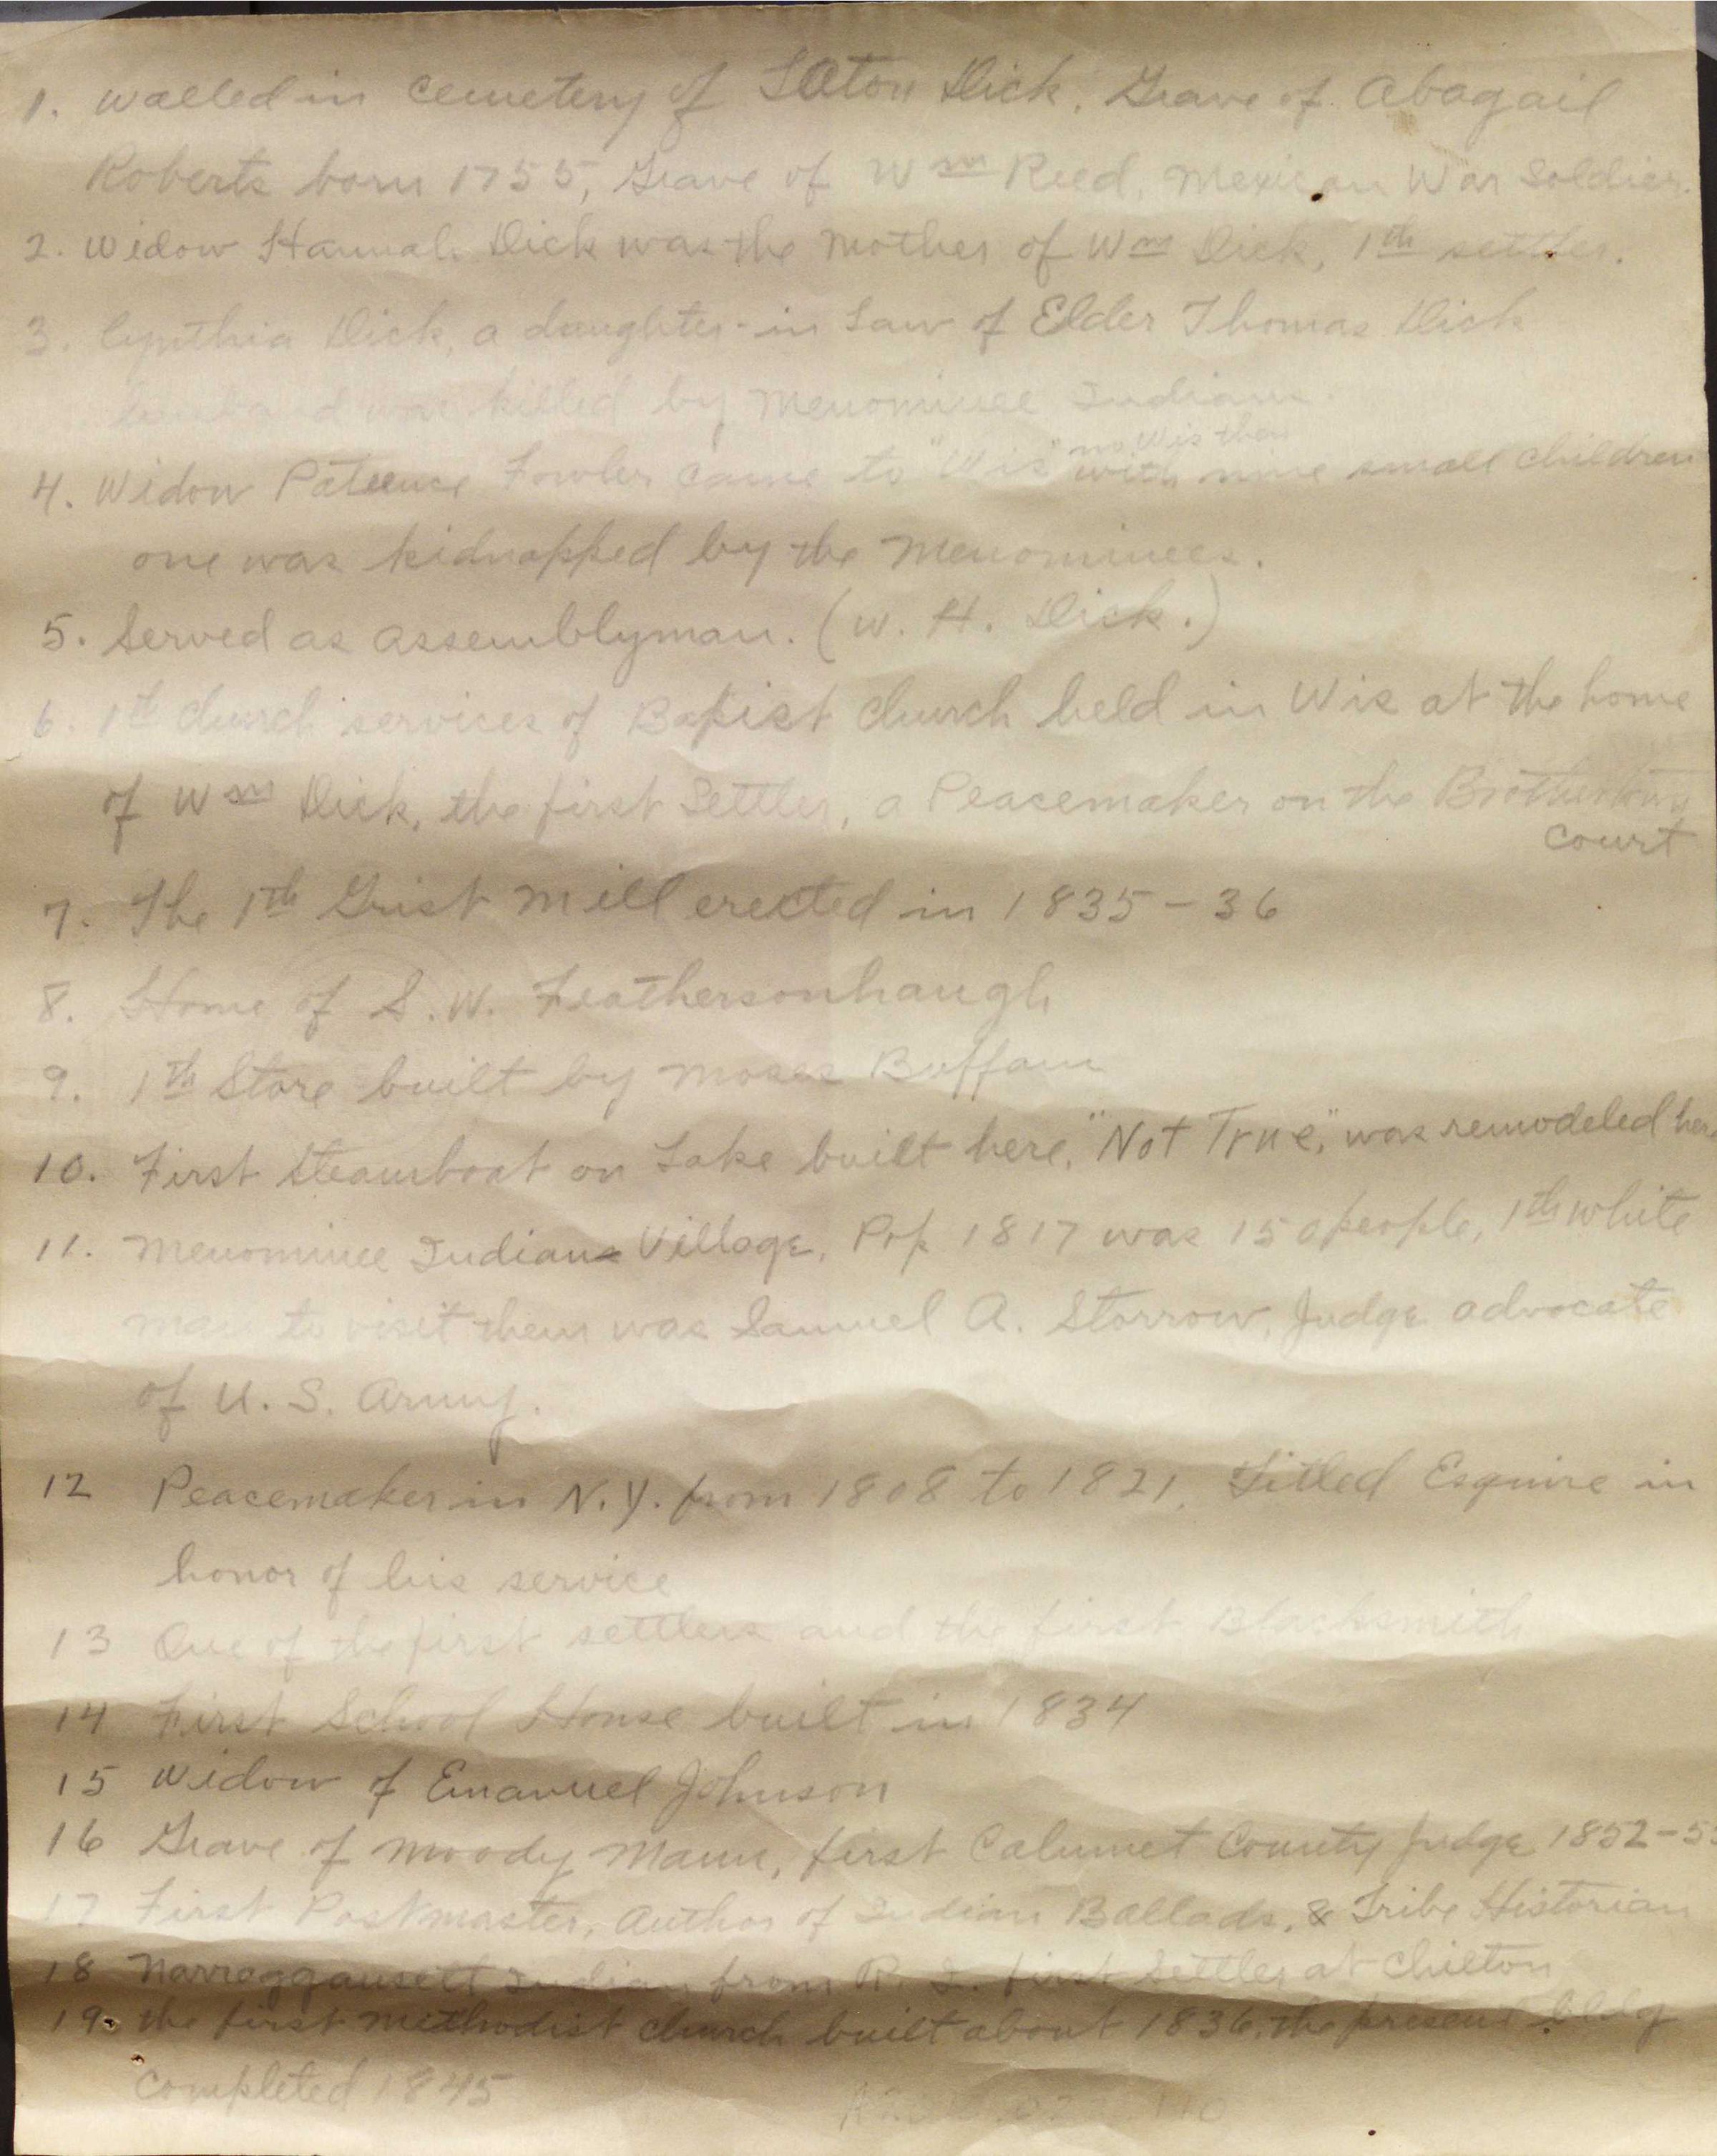 1. Walled in Cemetery of Laton Dick. Grave of Abagail
Roberts born 1755, Grave of Wm Reed, Mexican War Soldier.
2. Widow Hannah Dick was the Mother of Wm Dick, 1th settler.
3. Cynthia Dick, a daughter-in Law of Elder Thomas Dick
husband was killed by Menominee Indians.
no Wis then
4. Widow Pateence Fowler came to "Wis" with nine small children
one was kidnapped by the Menominees.
5. Served as assemblyman. (W. H. Dick.)
6. 1th church services of Baptist church held in Wis at the home
of Wm Dick, the first Settler, a Peacemaker on the Brothertown
Court
7. The 1th Grist Mill erected in 1835-36
8. Home of S. W. Feathersonhaugh
9. 1th Store built by Moses Buffam
10. First Steamboat on Lake built here. "Not True," was remodeled here
11. Menominee Indians Village, Pop 1817 was 150 people, 1th white
man to visit them was Samuel A. Storrow, Judge advocate
of U. S. Army.
12 Peacemaker in N.Y. from 1808 to 1821. Titled Esquire in
honor of his service
13 One of the first settlers and the first Blacksmith
14 First School House built in 1834
15 Widow of Emanuel Johnson
16 Grave of Moody Mann, first Calumet County Judge 1852-55
17 First Postmaster, Author of Indian Ballads, & Tribe Historian
18 Narraggansett Indian from R. I. first Settler at Chilton
19. the first Methodist church built about 1836, the present bldg
completed 1845